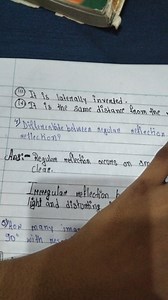 (iii) It is laterally inverted.
(iv) It is the same distance from the
Differentiate between regular reflection
reflection?
Ans:- Regular reflection occurs on
clear.
Irregular reflection
light and distorting
How many
90° with